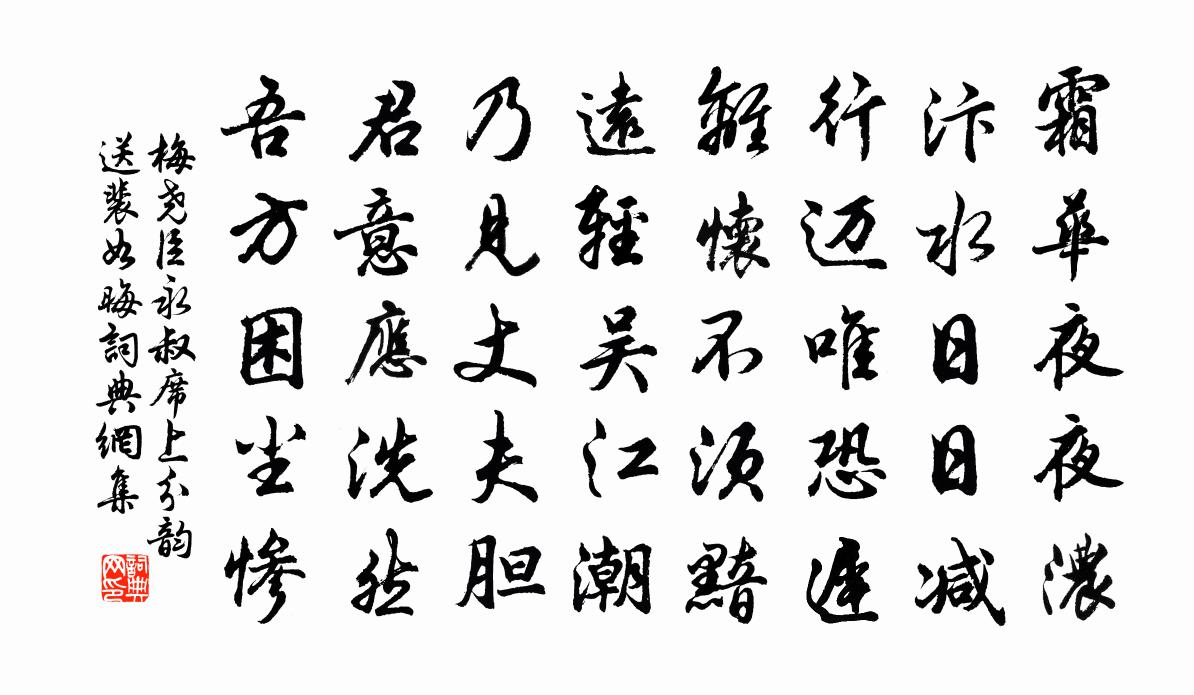 霜華夜夜濃
汴水日日减
行迈唯恐遲
離懷不须黯
遠輕吴江潮
乃見丈夫胆
君意應洗然
吾方困尘慘
梅尧臣永叔席上分韵
送裴如晦詞典網集
詞典网印